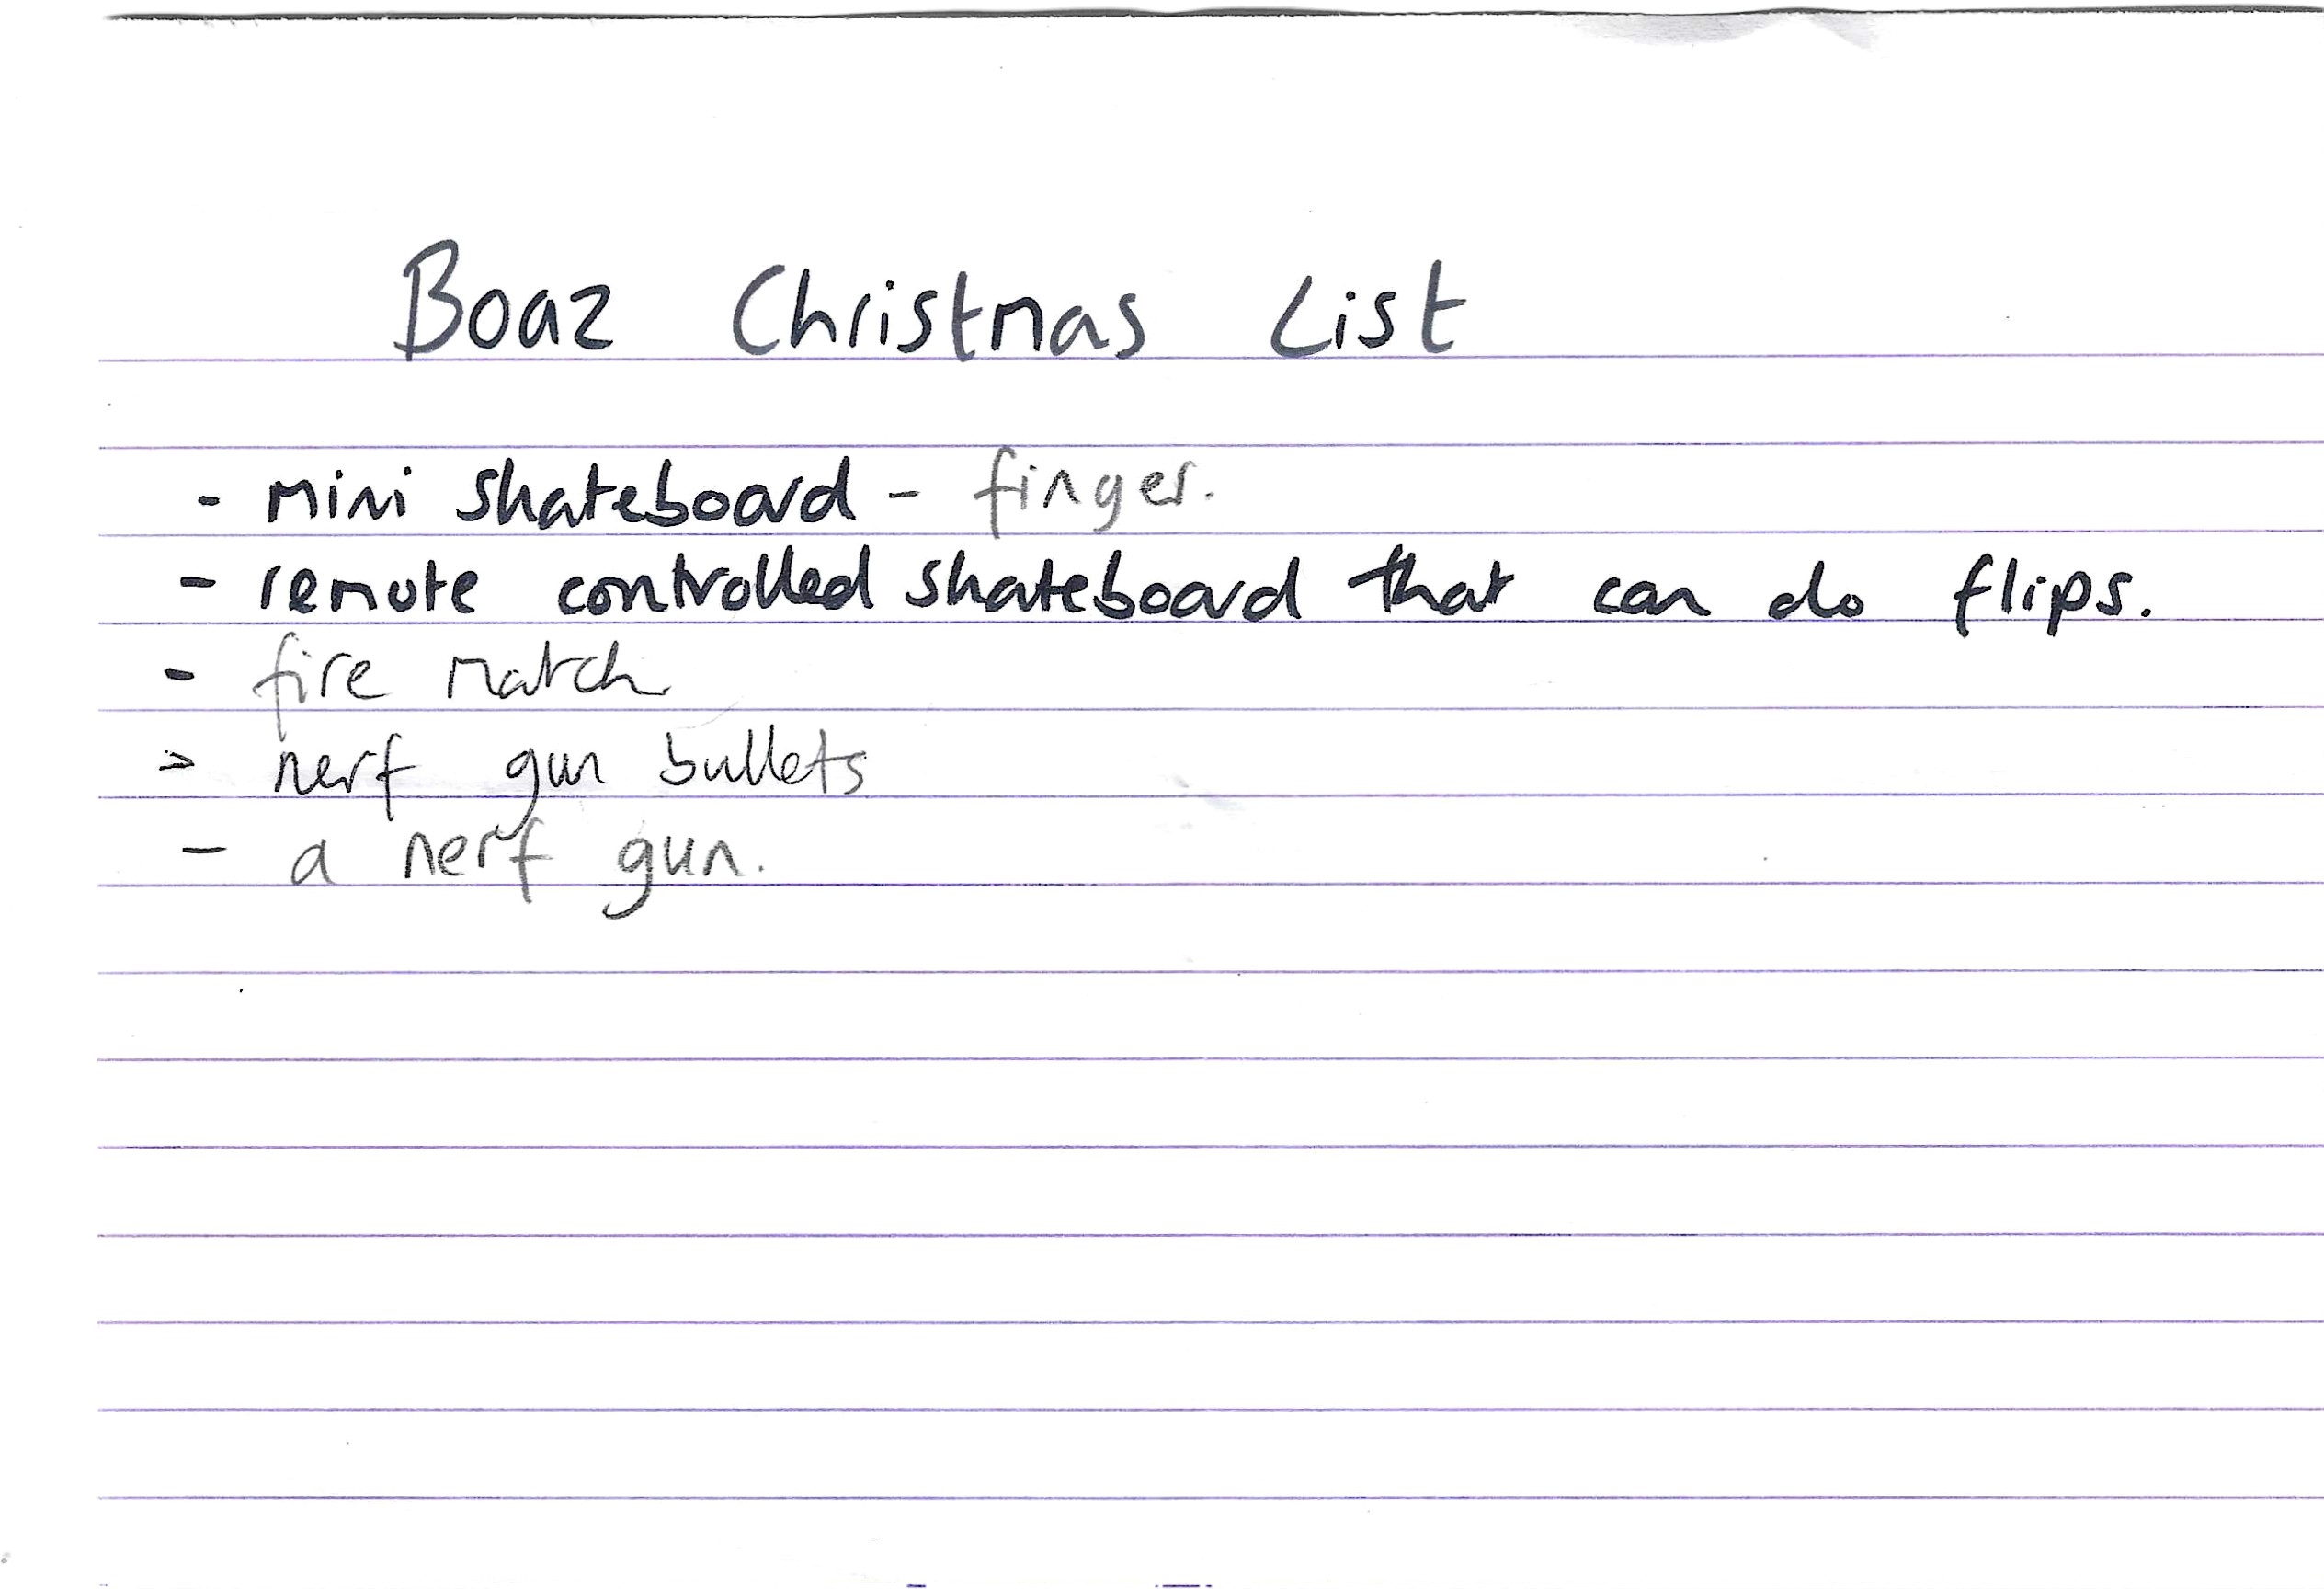 Boaz Christmas List
- mini skateboard - finger.
- remote controlled skateboard that can do flips.
- fire match
- nerf gun bullets
- a nerf gun.